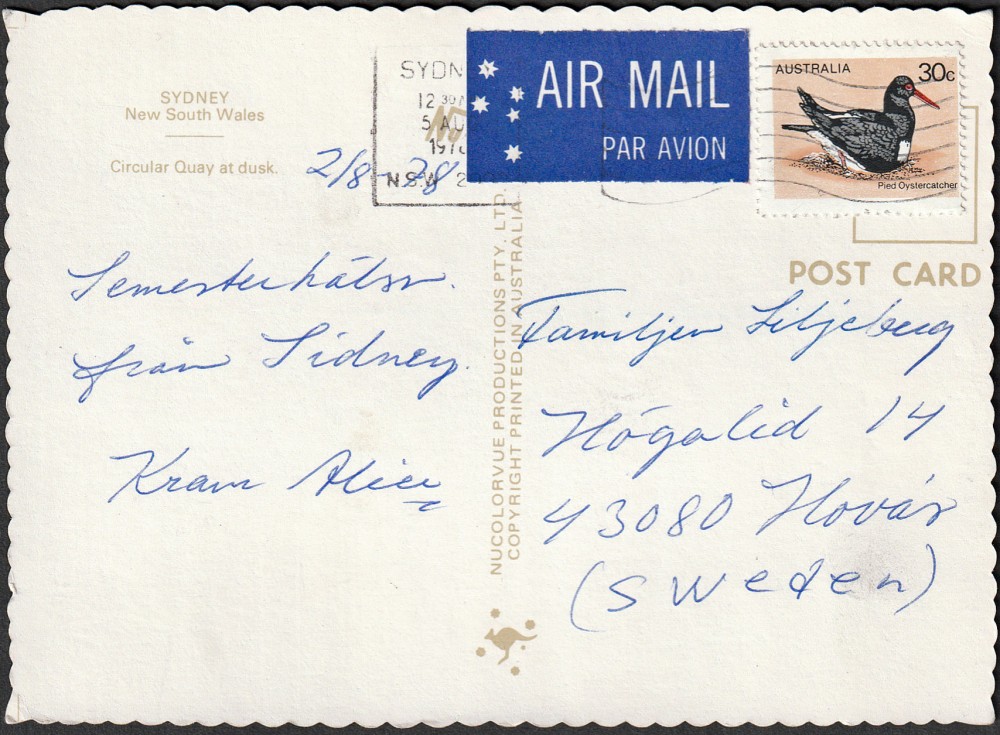 SYDNEY
New South Wales
Circular Quay at dusk.
2/8-78
SYDN
12 30
5 AU
197
N.S.W. 2
AIR MAIL
PAR AVION
AUSTRALIA
30c
Pied Oystercatcher
POST CARD
NUCOLORVUE PRODUCTIONS PTY. LTD.
COPYRIGHT PRINTED IN AUSTRALIA
Semesterhälsn.
från Sidney.
Kram Alice
Familjen Liljeberg
Högalid 14
43080 Hovås
(Sweden)